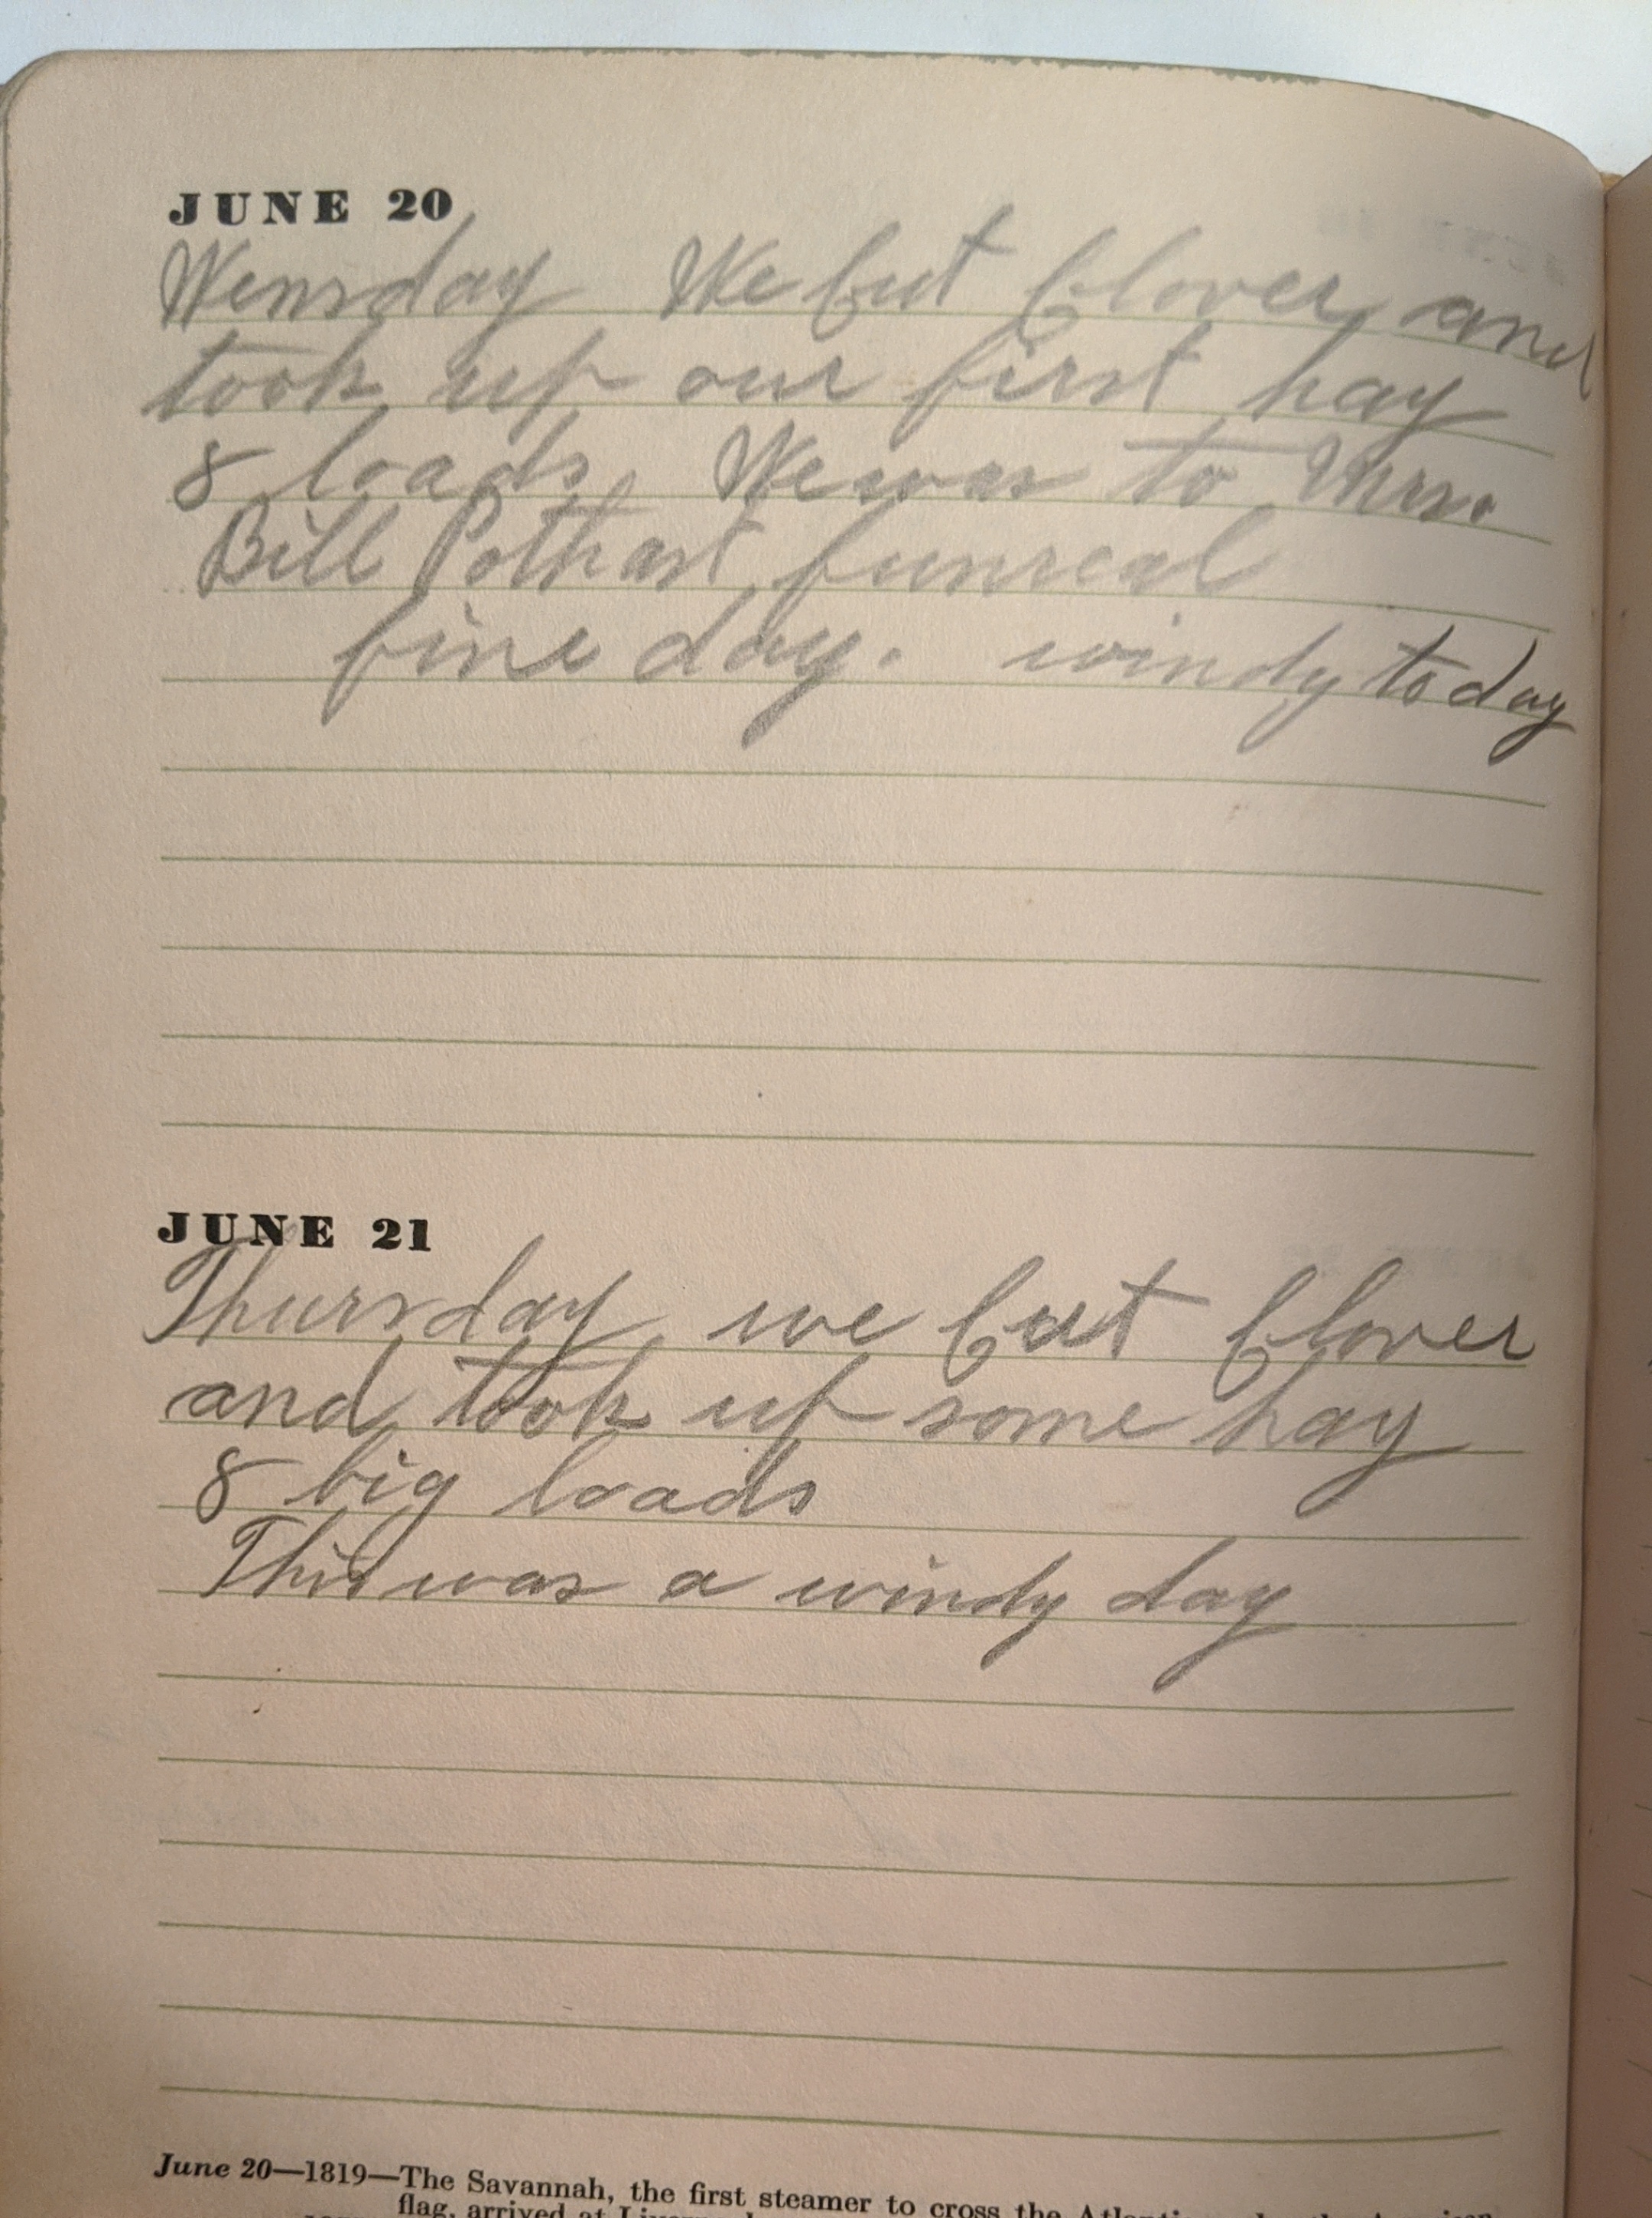 JUNE 20
Wensday We Cut Clover and
took up our first hay
8 loads. We was to Mrs.
Bill Pothast funreal
fine day. windy today
JUNE 21
Thursday we Cut Clover
and took up some hay
8 big loads
This was a windy day
June 20—1819—The Savannah, the first steamer to cross the
flag, arrived at